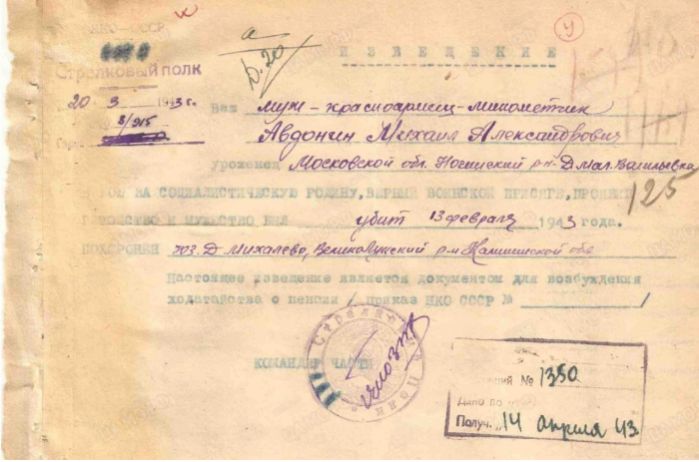 НКО-СССР
Стрелковый полк
20 3 1943 г.
8/915
а
D.20
У
ИЗВЕЩЕНИЕ
Ваш муж-красноармеец-минометчик
Авдонин Михаил Александрович
уроженец Московской обл. Ногинский р-н Д. Мал. Васильевка
125
НА СОЦИАЛИСТИЧЕСКУЮ РОДИНУ, ВЕРНЫЙ ВОИНСКОЙ ПРИСЯГЕ, ПРОЯВИВ
ГЕРОЙСТВО И МУЖЕСТВО БЫЛ убит 13 февраля 1943 года.
ПОХОРОНЕН юз. Д Михалево, Великолукский р-н Калининской обл
Настоящее извещение является документом для возбуждения
ходатайства о пенсии / приказ НКО СССР № /
Стрелковый Полк
КОМАНДИР ЧАСТИ
№ 1350
Дело по
Получ. „14 апреля 43